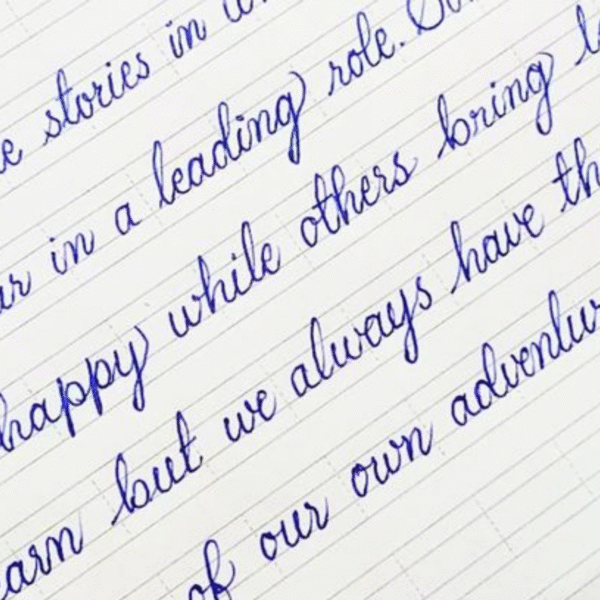 stories in
in a leading role.
happy while others bring
but we always have
of our own